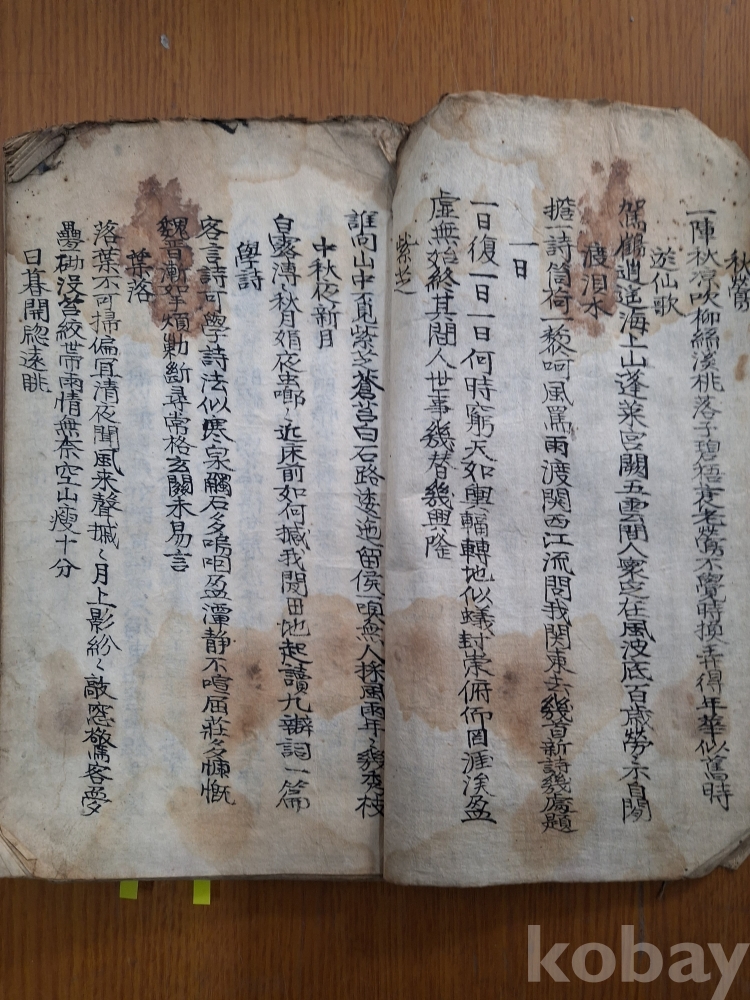 秋鶯
一陣秋凉吹柳絲溪桃落子碧梧衰老鶯不覺時換弄得年華似舊時
遊仙歌
駕鶴逍遙海上山蓬萊宮闕五雲間人寰定在風波底百歲勞〻不自閒
渡泪水
擔一詩筒荷一藜呵風罵雨渡関西江流問我関東去幾首新詩幾處題
一日
一日復一日一日何時窮天如輿輻轉地似蟻封崇俯仰罔涯涘盈
虛無始終其間人世事幾替幾興隆
紫芝
誰向山中不見紫芝蒼苔白石路逶迤留侯一唉無人採風雨年〻幾枝
中秋夜新月
白露漙〻秋月娟夜虫唧〻近床前如何撼我閒田地起讀九辯詞一篇
學詩
客言詩可學詩法似寒泉觸石多嗚咽盈潭靜不喧屈莊多慷慨
魏晋漸挐煩勅斷尋常格玄關未易言
葉落
落葉不可掃偏宜清夜聞風来聲撼〻月上影紛〻敲窓驚客夢
疊砌沒苔紋世帯雨情無奈空山瘦十分
日暮開窓遠眺
kobay